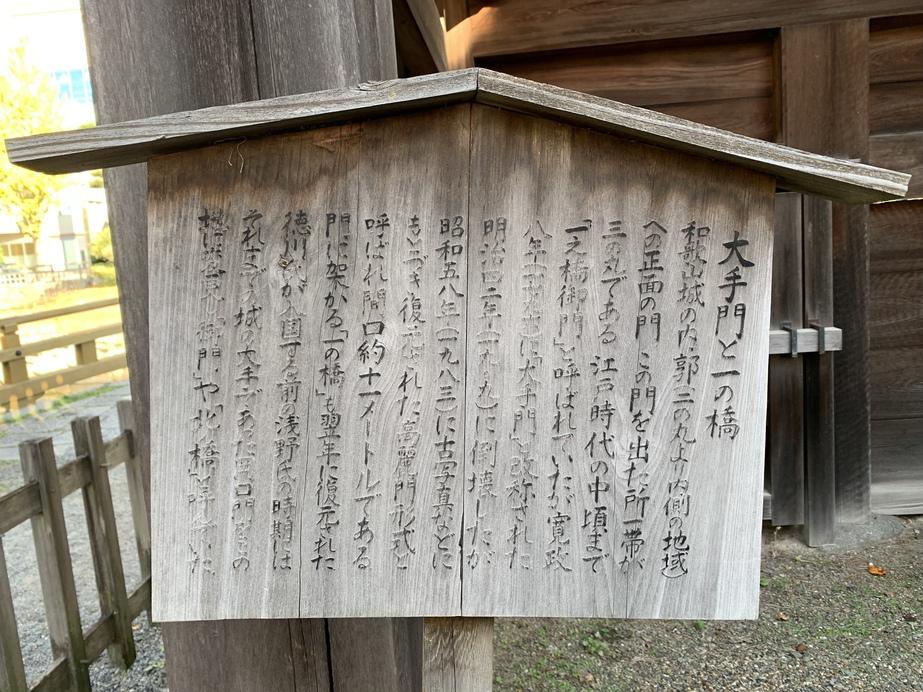 大手門と一の橋
和歌山城の内郭(二の丸より内側の地域)
への正面の門 この門を出た所一帯が
三の丸である 江戸時代の中頃まで
「一之橋御門」と呼ばれていたが寛政
八年(一七九六)に「大手門」と改称された
明治四二年(一九〇九)に倒壊したが
昭和五八年(一九八三)に古写真などに
もとづき復元された高麗門形式と
呼ばれ間口約十メートルである
門に架かる「一の橋」も翌年に復元された
徳川氏が入国する前の浅野氏の時期には
それまでの城の大手であった
「御門」や 橋と呼んでいた